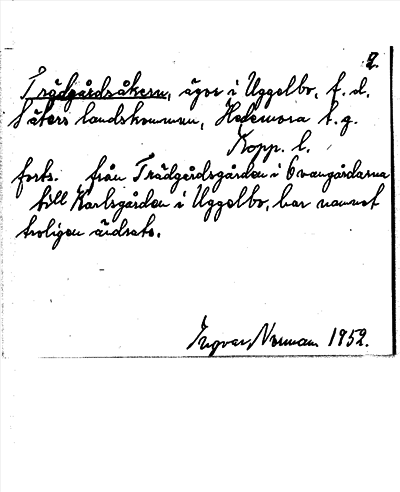 2.
Trädgårdsåkern, ägor i Uggelbo, f. d.
Säters landskommun, Hedemora t. g.
Kopp. l.
forts. från Trädgårdsgården i Ovangårdarna
till Karlsgården i Uggelbo, har namnet
troligen ändrats.
Ingvar Norman 1952.